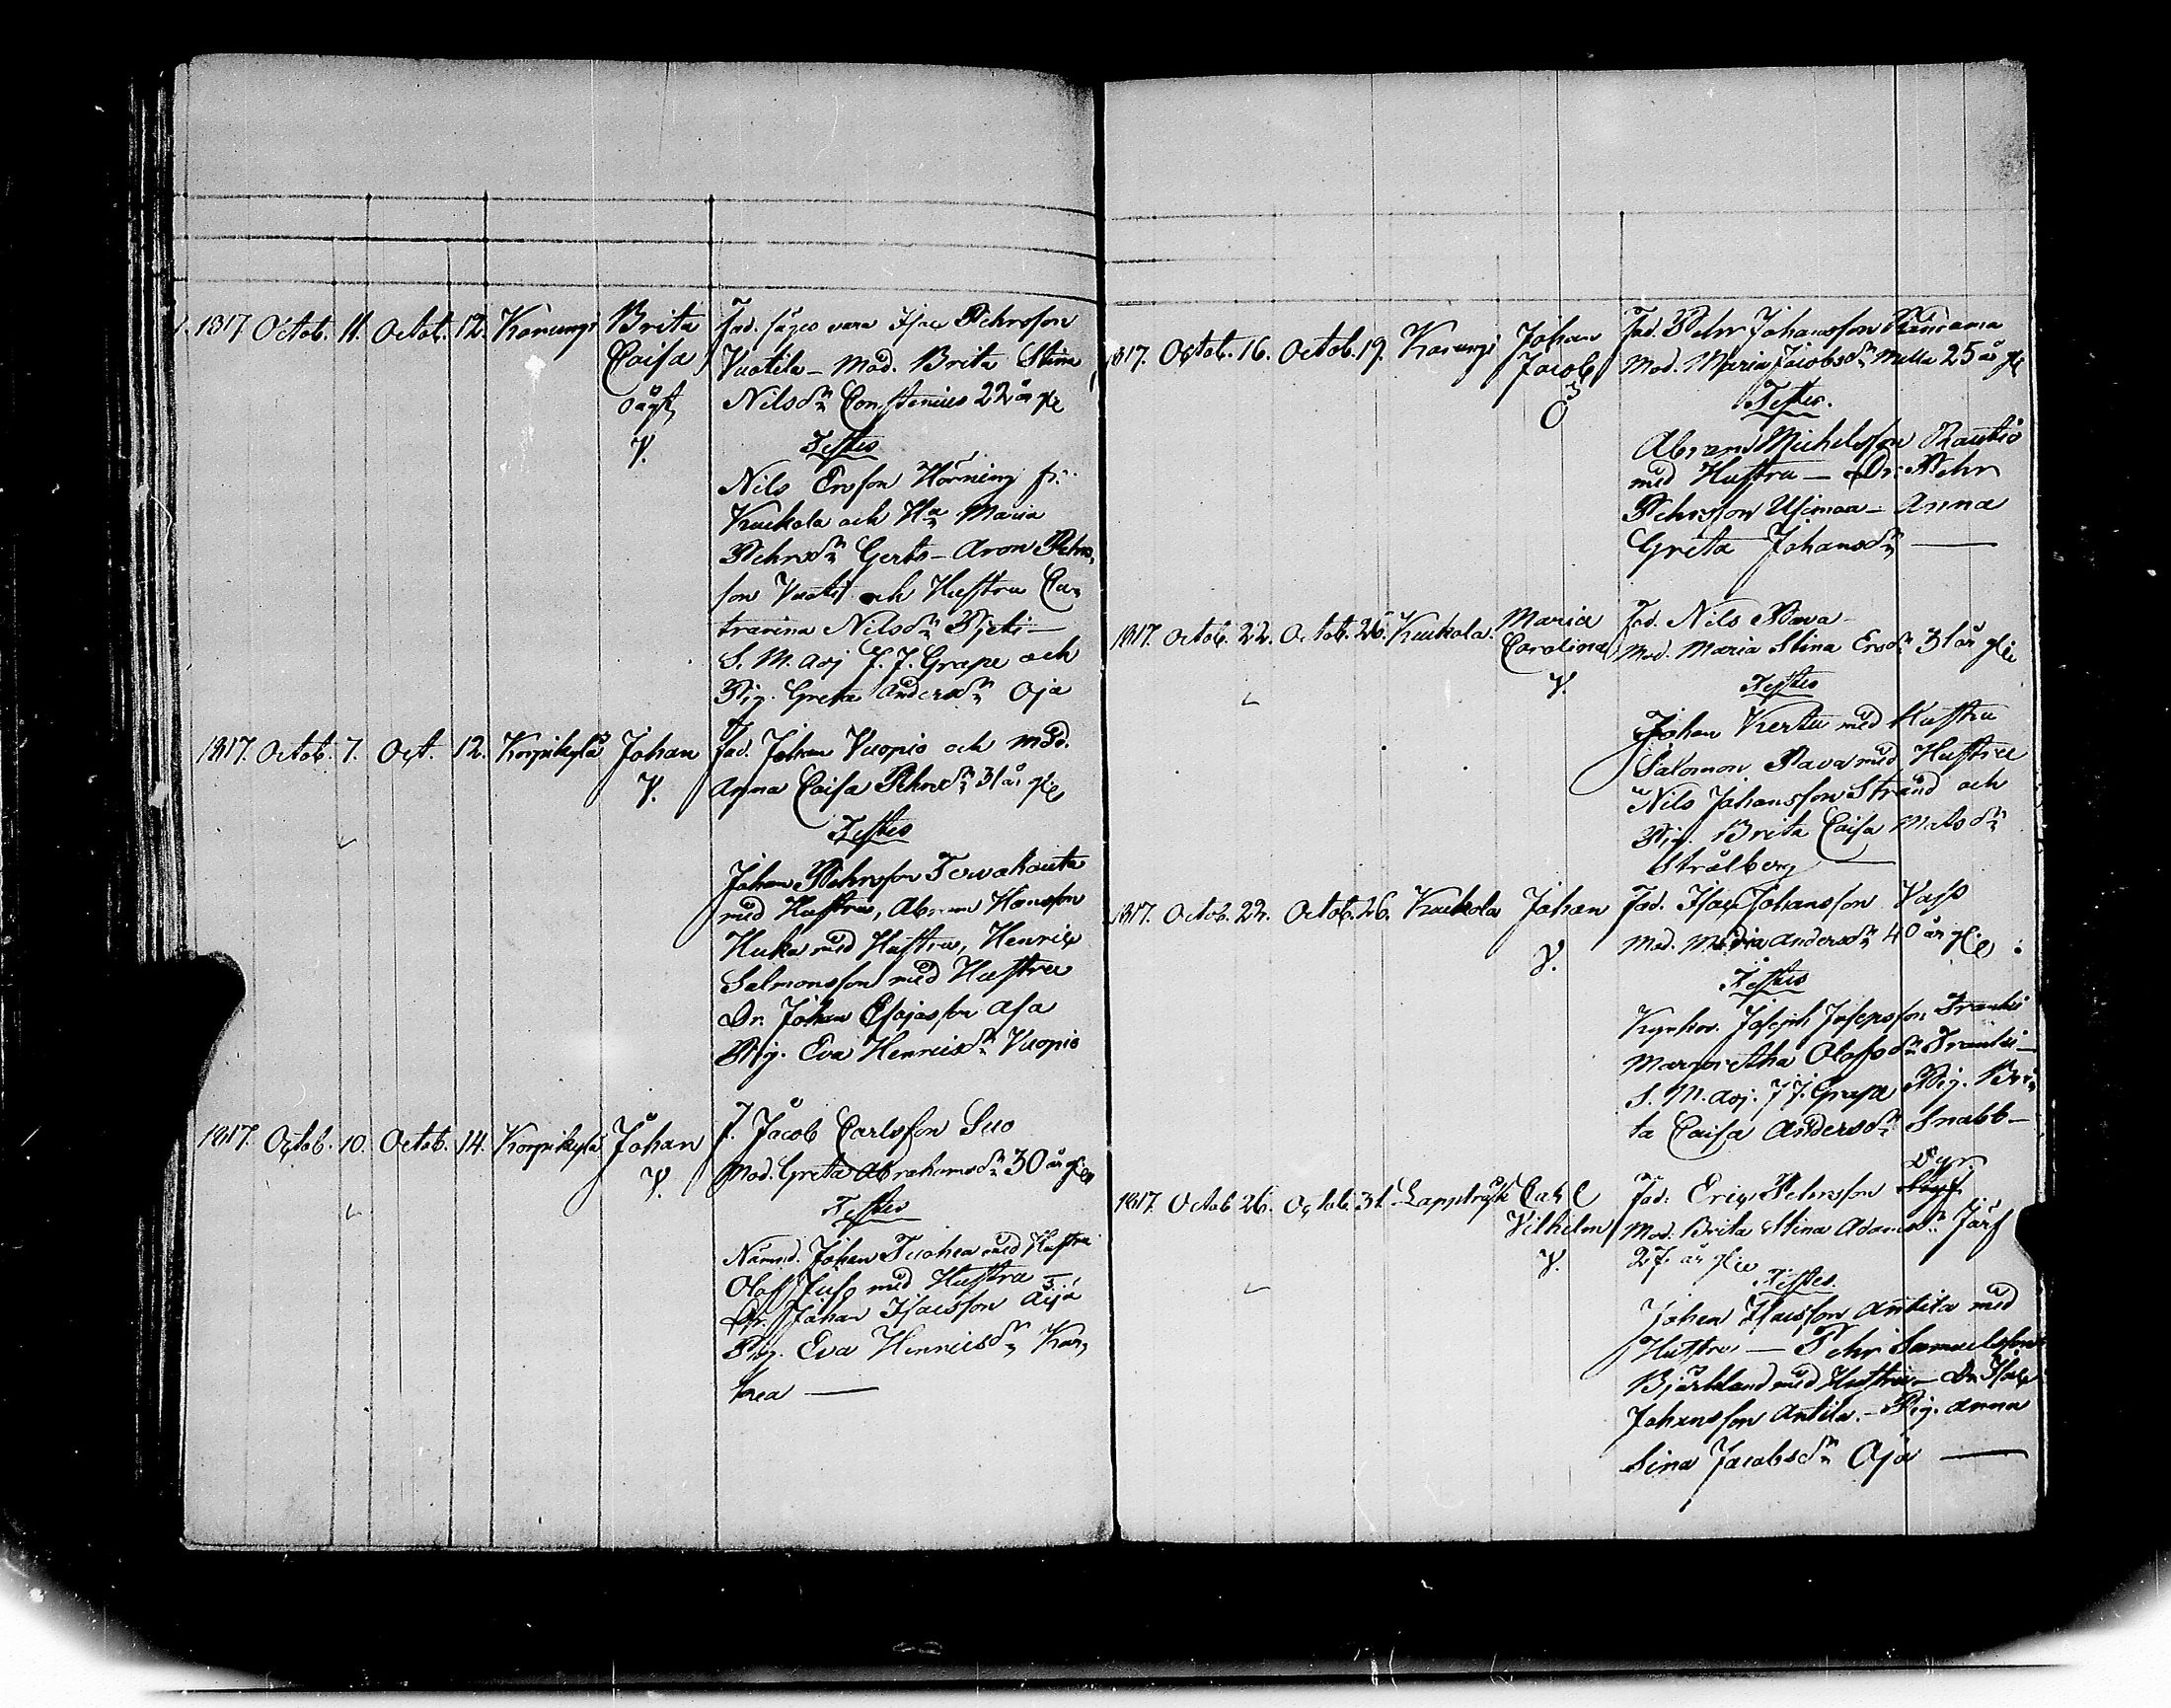 1817 Octob. 11. Octob. 12. Karungi Brita Fad. säges vara Isac Pehrsson
Caisa Vuotila – Mod. Brita Stina
oägt, Nilsdr Constenius 22 år gl
V. Testes
Nils Ersson Hörning fr.
Kuckola och Ha Maria
Pehrsdr Gerts – Aron Pehrs,
son Vuoti och Hustru Ca,
trarina Nilsdr Pjeti –
S. M. Adj J. J. Grape och
Pig. Greta Andersdr Oja
1817. Octob. 7. Oct. 12. Korpikylä Johan Fad. Johan Vuopio och Mod.
V. Anna Caisa Pehrsdr 31 år gl
Testes
Johan Pehrsson Terwahauta
med Hustru, Abram Hansson
Huka med Hustru, Henric
Salmonsson med Hustru
Dr. Johan Esajasson Asa
Pig. Eva Henricsdr Vuopio
1817. Octob. 10. Octob. 14. Korpikylä Johan F. Jacob Carlsson Suo
V. Mod. Greta Abrahamsdr 30 år gl
Testes
Nämnd. Johan Tuohea med Hustru
Olof Juso med Hustru –
Dr. Johan Isacsson
Pig. Eva Henricsdr Kar,
hea —
1817. Octob. 16. Octob. 19. Karungi Johan Fad. Pehr Johansson
Jacob Mod. Maria Jacobsdr Mella 25 år gl
Testes.
Abram Michelsson Rautio
med Hustru – Dr. Pehr
Pehrsson Usimaa – Anna
Greta Johansdr —
1817. Octob. 22. Octob. 26. Kuckola. Maria Fad. Nils Pava –
Carolina Mod. Maria Stina Ersdr 31 år gl
V. Testes
Johan Kertu med Hustru
Salomon Pava med Hustru
Nils Johansson Strand och
Pig. Brita Caisa Matsdr
Strålberg —
1817. Octob. 22. Octob. 26. Kuckola Johan Fad. Isac Johansson Vass
V. Mod. Maria Andersdr 40 år gl
Testes
Kyrkov. Joseph Josepsson Franki
Margretha Olofsdr Franki –
S. M. Adj. J J. Grape Pig. Bri,
ta Caisa Andersdr Snabb –
1817. Octob 26. Octob. 31. Lappträsk Carl Fad. Eric Pehrsson
Vilhelm Mod. Brita Stina Adamsdr Järf
V. 27 år gl
Testes.
Johan Isacsson Antila med
Hustru — Pehr Samuelsson
Björklund med Hustru – Dr. Isac
Johansson Antila. – Pig. Anna
Sina Jacobsdr Oja —